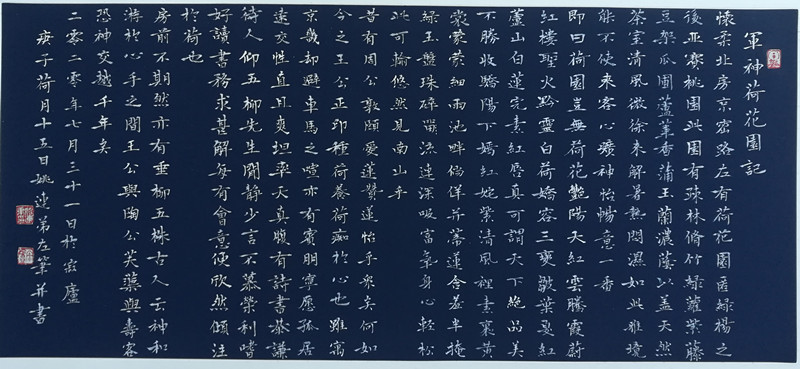 軍神荷花園記
懷柔北房京密路左有荷花園面綠楊之
後亚寨桃園此園有疎林脩竹綠蘿紫藤
豆架瓜圃蘆葦香蒲玉蘭濃蔭以盖天然
茶室清風微徐来解暑熱悶濕如此雅境
能不使来客心曠神怡暢意一番
即曰荷園豈無荷花艷陽天紅雲騰霞蔚
紅樓聖火黔靈白荷嬌容三變皺葉夏紅
蘆山白蓮定素紅唇真可謂天下絶品美
不勝收驕陽下嬌紅婉紫清風裡素裏黄
裳蒙蒙細雨池畔倘佯并蒂蓮含羞半掩
綠玉盤珠碎濺流連深吸富氧身心輕松
此可輪悠然見南山乎
昔有周公敦頤愛蓮贊蓮怡乎衆矣何如
今之王公正印種荷養荷痴於心也雖寓
京畿却避車馬之喧亦有賓朋寧愿孤居
遠交性直且爽坦率天真腹有詩書恭謙
待人仰五柳先生閒静少言不慕榮利嗜
好讀書務求甚解每有會意便欣然傾注
於荷也
房前不期然亦有垂柳五株古人云神和
游於心手之間王公與陶公芙蕖與壽客
恐神交越千年矣
二零二零年七月三十一日於寂廬
庚子荷月十五日姚連第左筆并書